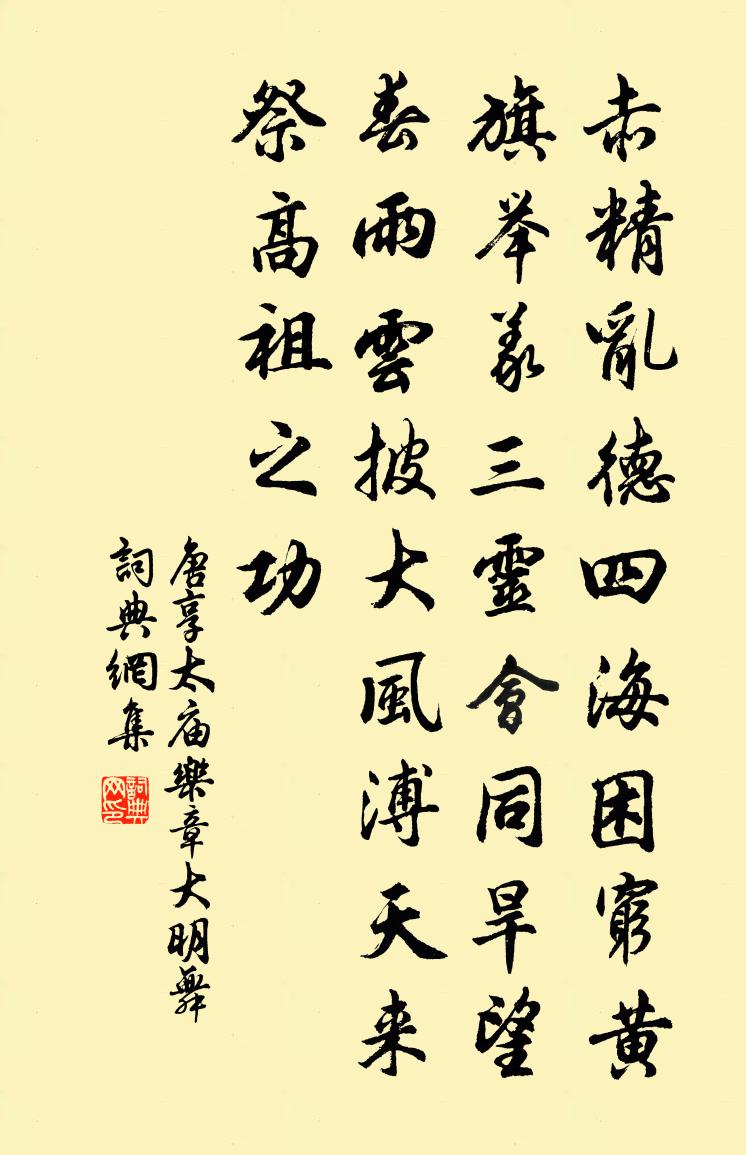 赤精亂德四海困窮黄
旗举義三靈會同旱望
春雨雲披大風溥天来
祭高祖之功
唐享太庙樂章大明舞
詞典網集
詞典网印